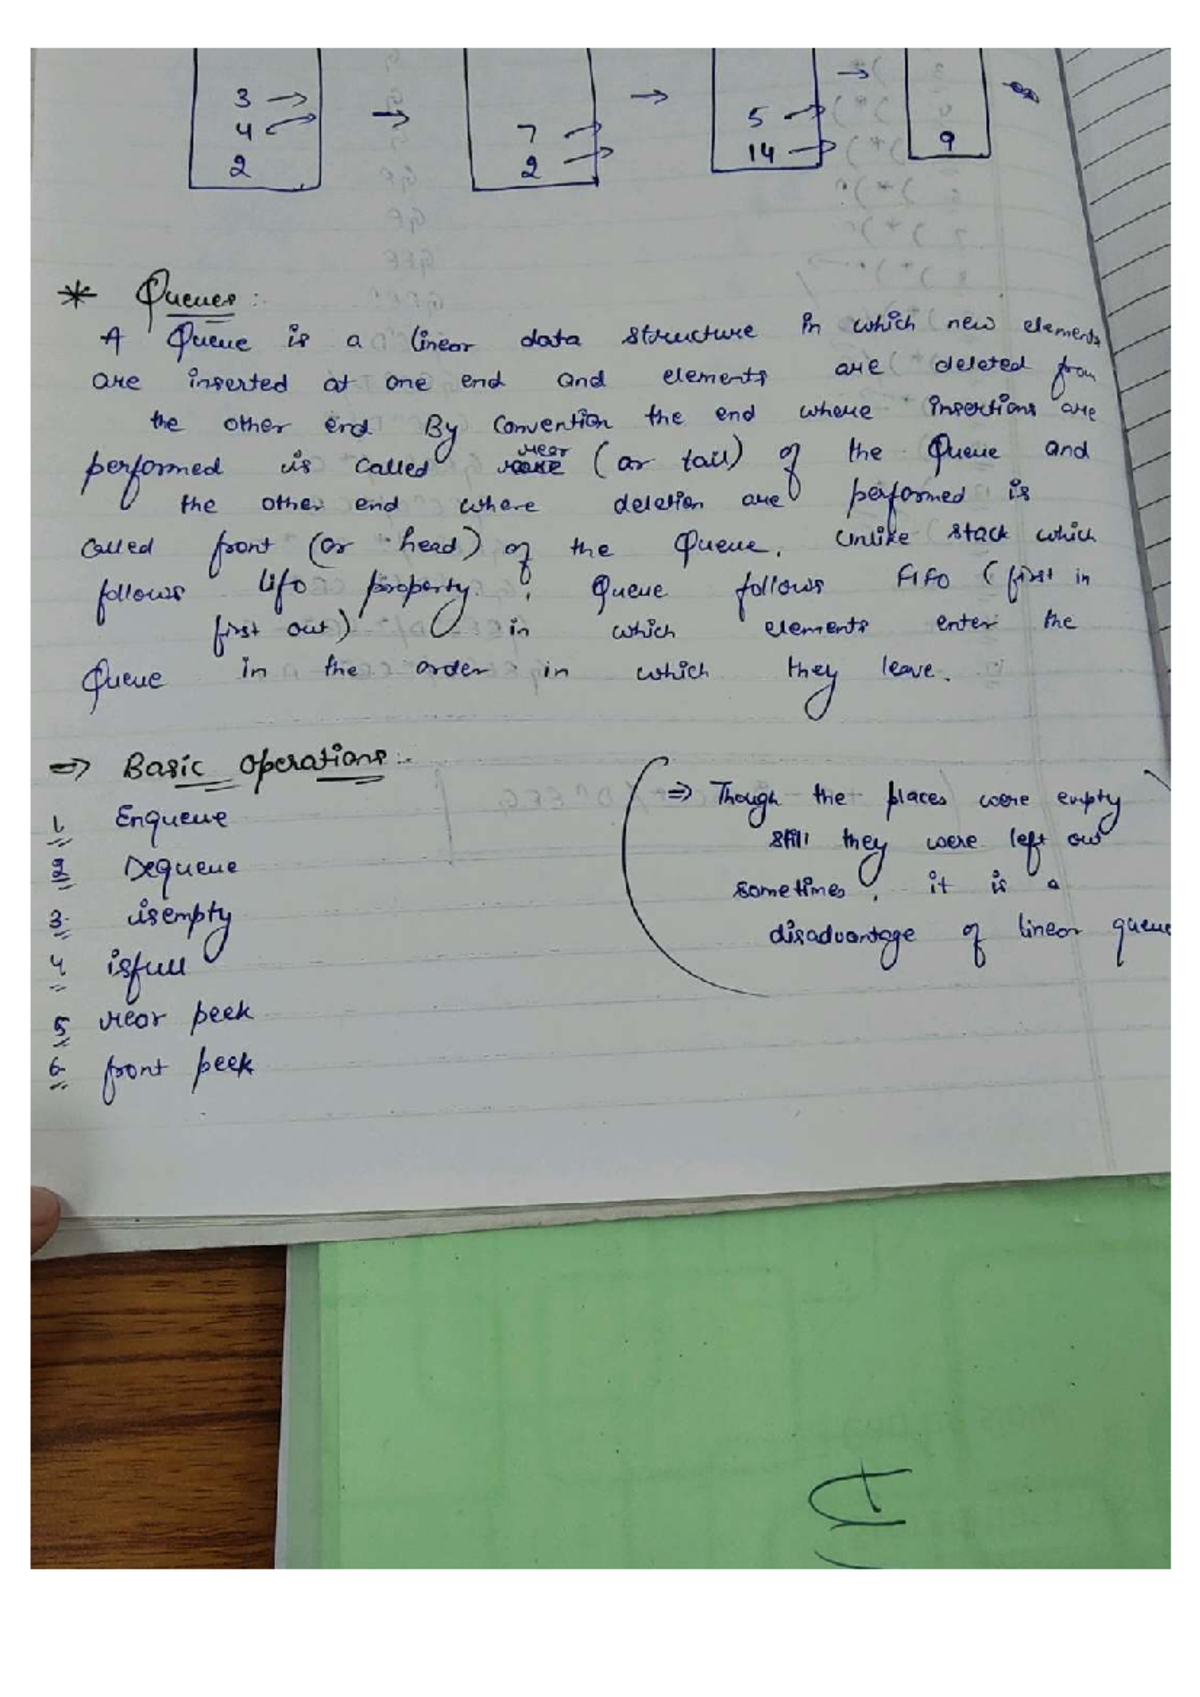 3 → → 7 → → 5 → → 9
4 →
2 2 → 14 →
* Queues :
A Queue is a linear data structure in which new elements
are inserted at one end and elements are deleted from
the other end. By convention the end where insertions are
performed is called rear (or tail) of the Queue and
the other end where deletion are performed is
called front (or head) of the Queue. Unlike stack which
follows lifo property, Queue follows FIFO (first in
first out) in which elements enter the
Queue in the order in which they leave.
⇒ Basic Operations :-
1. Enqueue
2. Dequeue
3. isempty
4. isfull
5. rear peek
6. front peek
⇒ Though the places were empty
still they were left out
sometimes, it is a
disadvantage of linear queue